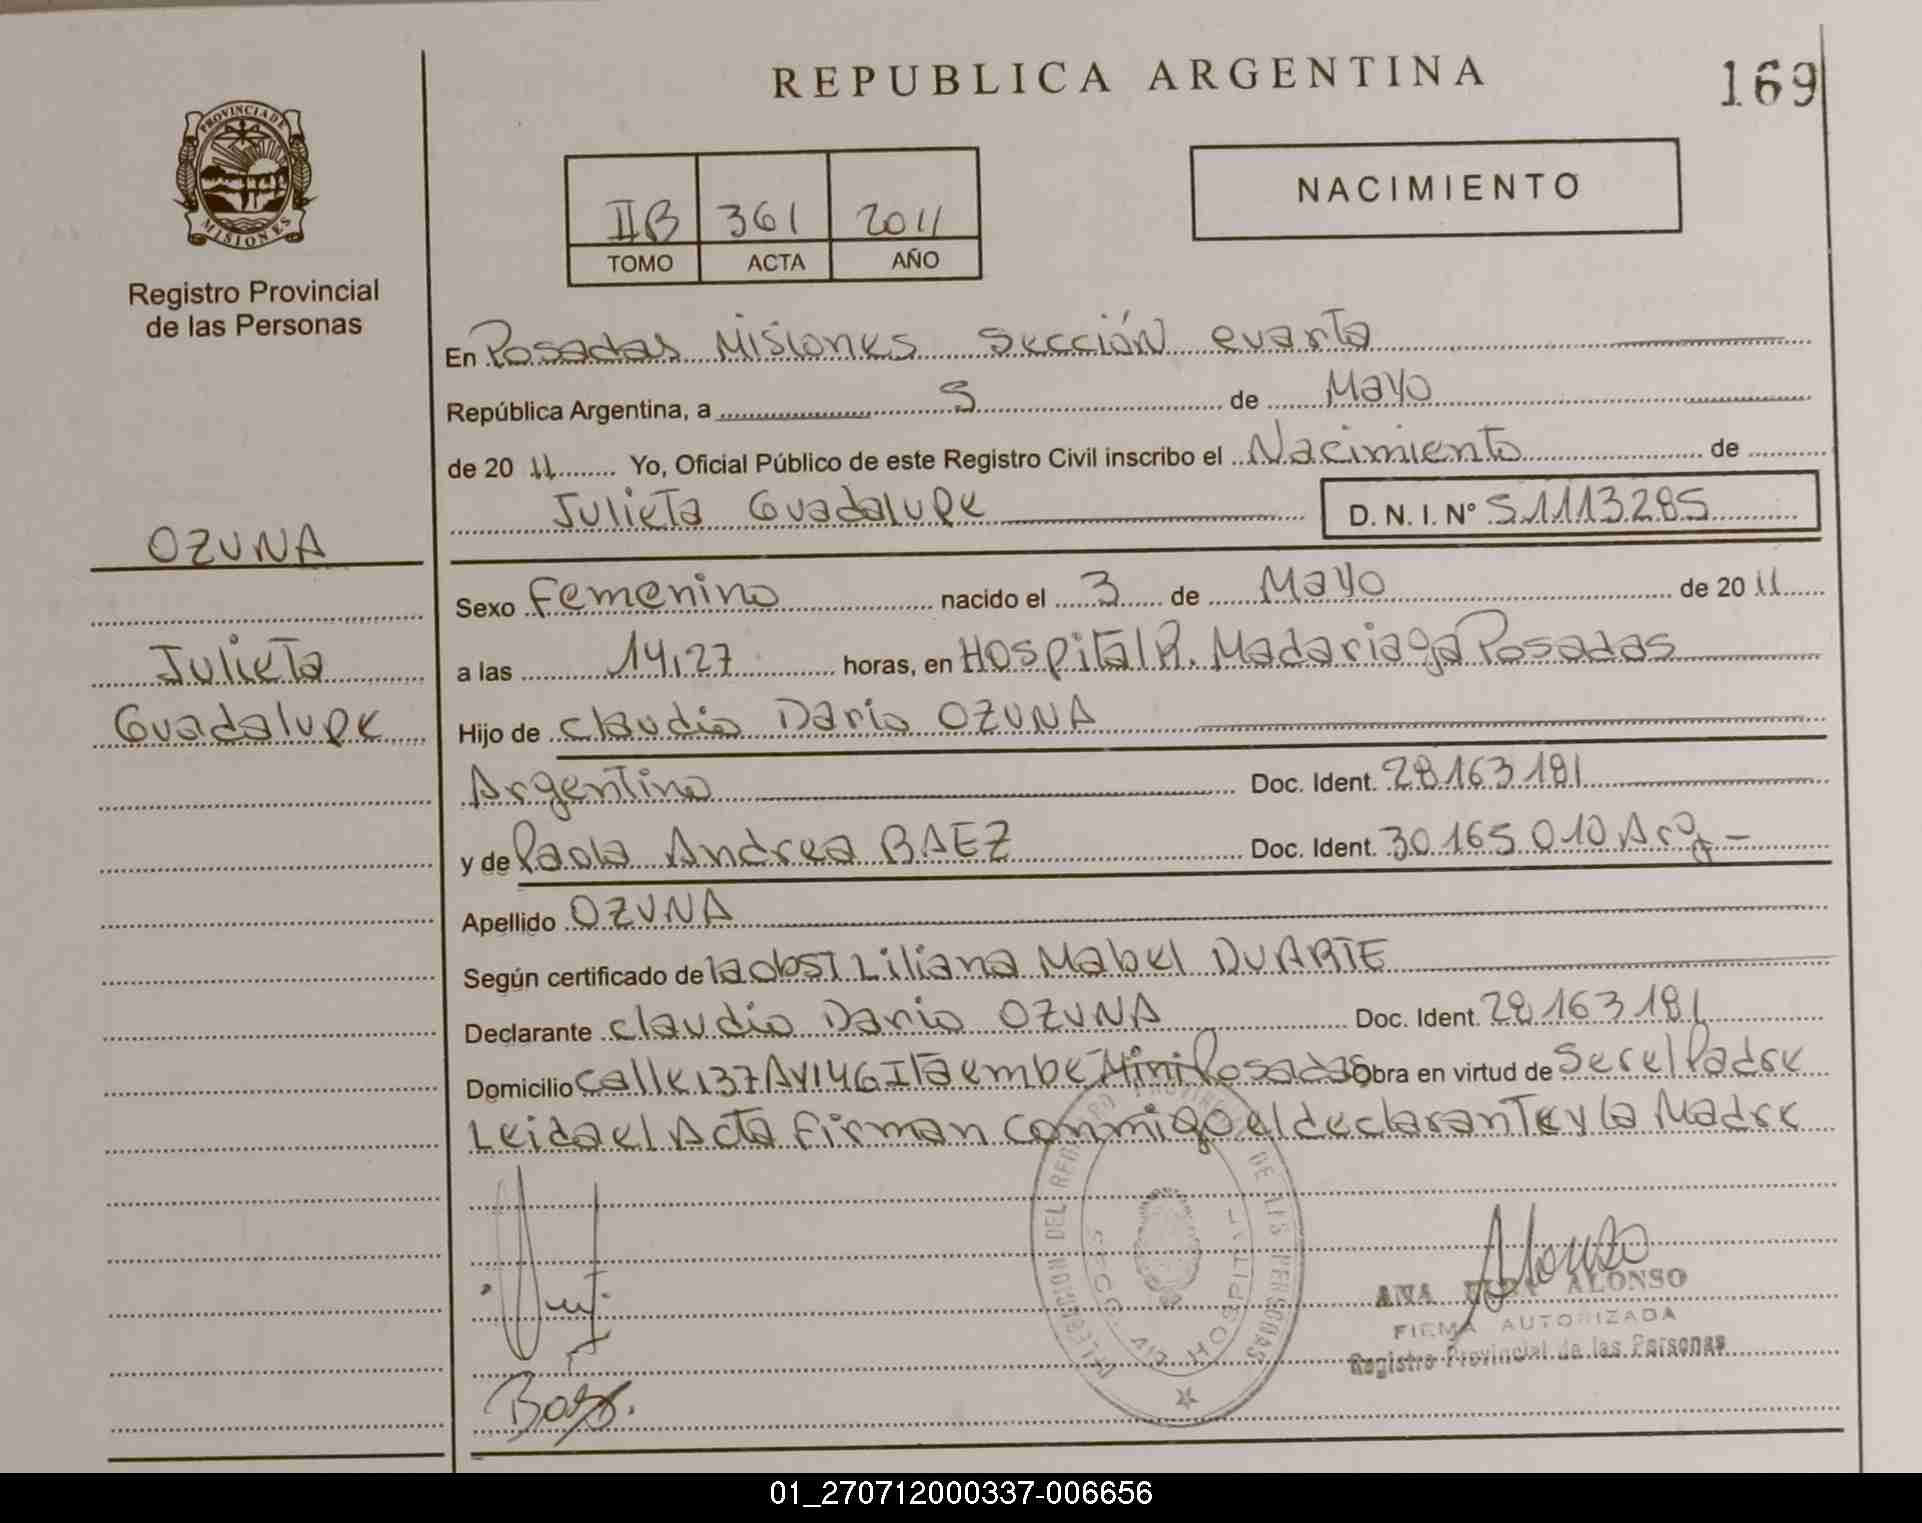 REPUBLICA ARGENTINA
169
PROVINCIA DE
MISIONES
Registro Provincial
de las Personas
IIB 361 2011
TOMO ACTA AÑO
NACIMIENTO
En Posadas Misiones Sección cuarta
República Argentina, a 5 de Mayo
de 20 11 Yo, Oficial Público de este Registro Civil inscribo el Nacimiento de
Julieta Guadalupe D. N. I. N° 51113285
OZUNA
Julieta
Guadalupe
Sexo Femenino nacido el 3 de Mayo de 20 11
a las 14,27 horas, en Hospital R. Madariaga Posadas
Hijo de Claudio Dario OZUNA
Argentino Doc. Ident. 28163181
y de Paola Andrea BAEZ Doc. Ident. 30165010 Arg -
Apellido OZUNA
Según certificado de la obst Liliana Mabel DUARTE
Declarante Claudio Dario OZUNA Doc. Ident. 28163181
Domicilio Calle 137 AV 146 Itaembe Mini Posadas Obra en virtud de Ser el Padre
Leida el Acta Firman conmigo el declarante y la Madre
DELEGACION DEL REGISTRO PROVINCIAL DE LAS PERSONAS
SECC. 4ta HOSPITAL
Baez.
Alonso
ANA ALONSO
FIRMA AUTORIZADA
Registro Provincial de las Personas
01_270712000337-006656